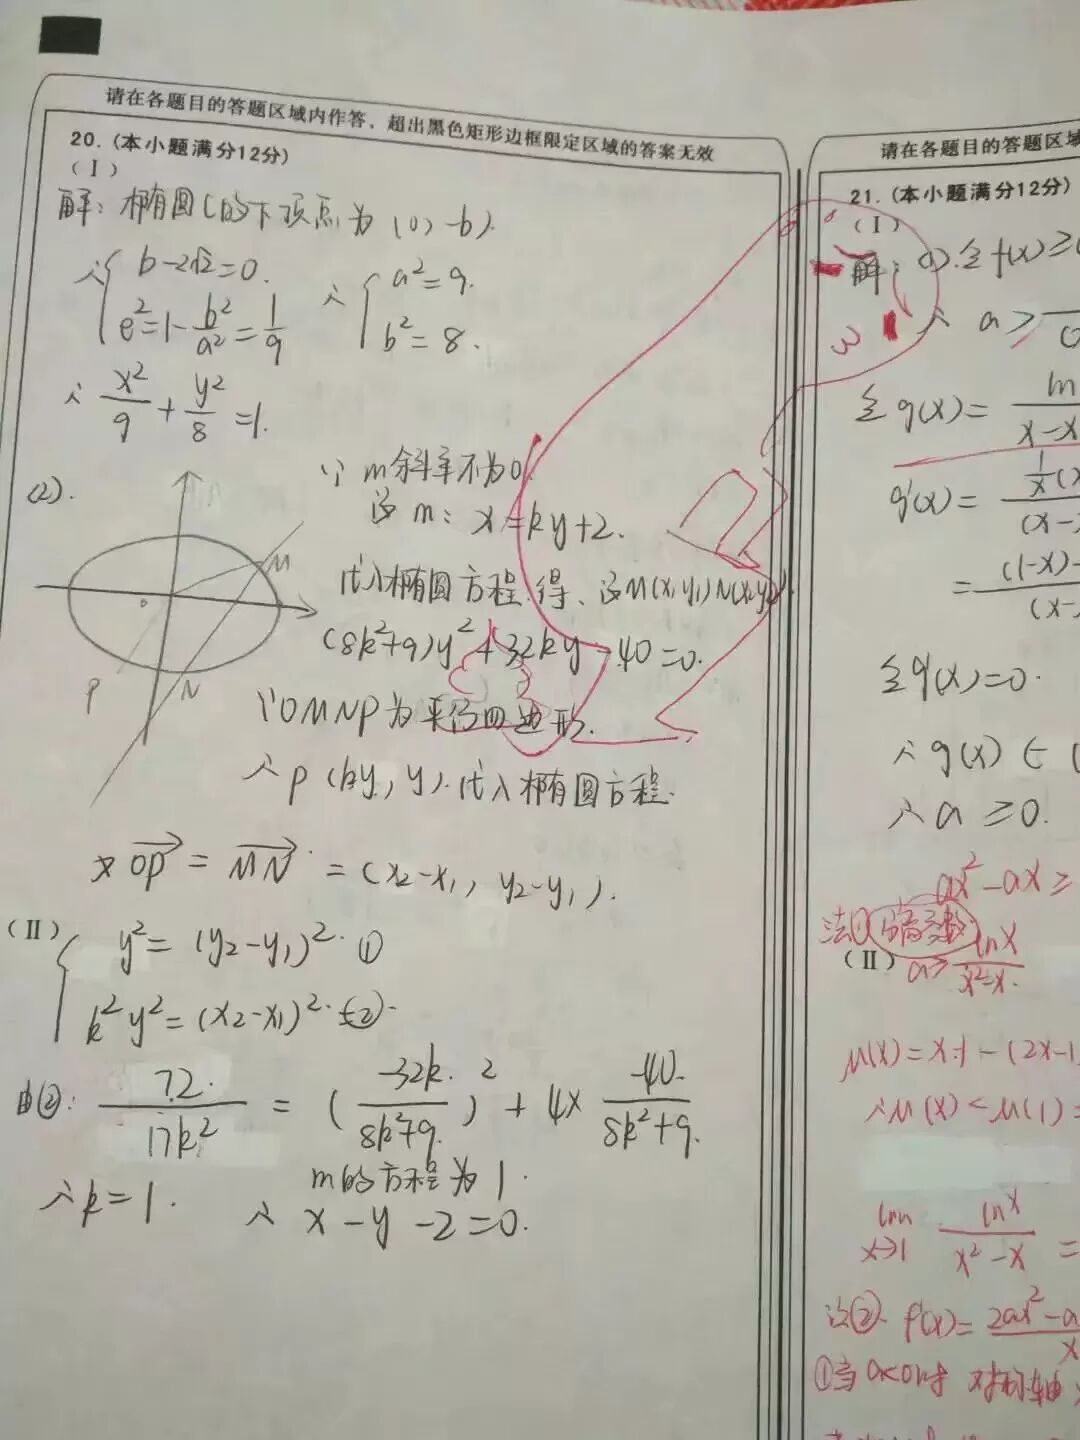 请在各题目的答题区域内作答，超出黑色矩形边框限定区域的答案无效
20. (本小题满分12分)
(Ⅰ)
解：椭圆C的下顶点为(0，-b).
∴ { b-2√2=0. e²=1-b²/a²=1/9
∴ { a²=9. b²=8.
∴ x²/9+y²/8=1.
(2).
M
o
P
N
∵ m斜率不为0
设m：x=ky+2.
代入椭圆方程.得、设M(x₁y₁)N(x₂y₂)
(8k²+9)y²+32ky-40=0.
∵OMNP为平行四边形.
∴P(ky, y).代入椭圆方程.
又 OP→ = MN→ =(x₂-x₁, y₂-y₁).
(Ⅱ)
{ y²=(y₂-y₁)²·①
k²y²=(x₂-x₁)²·②.
由②: 72/17k² = (-32k/8k²+9)² + 4× -40/8k²+9
∴k=1.
m的方程为
∴ x-y-2=0.
请在各题目的答题区域
21. (本小题满分12分)
(Ⅰ)
解：(1).全f(x)≥
∴ a≥
全g(x)= ln/x-x
g'(x)= 1/x(x
(x-
= (1-x)-
(x-
全g'(x)=0.
∴g(x)
∴a≥0.
ax²-ax≥
法①
(Ⅱ)
a≥lnx/x²-x.
μ(x)=x-1-(2x-1
∴μ(x)<μ(1)=
lim x→1 lnx/x²-x =
法②. f'(x)=2ax²-a/x
①当a<0时 对称轴